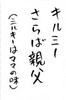 キルミー
さらば親父
(ミルキーはママの味)